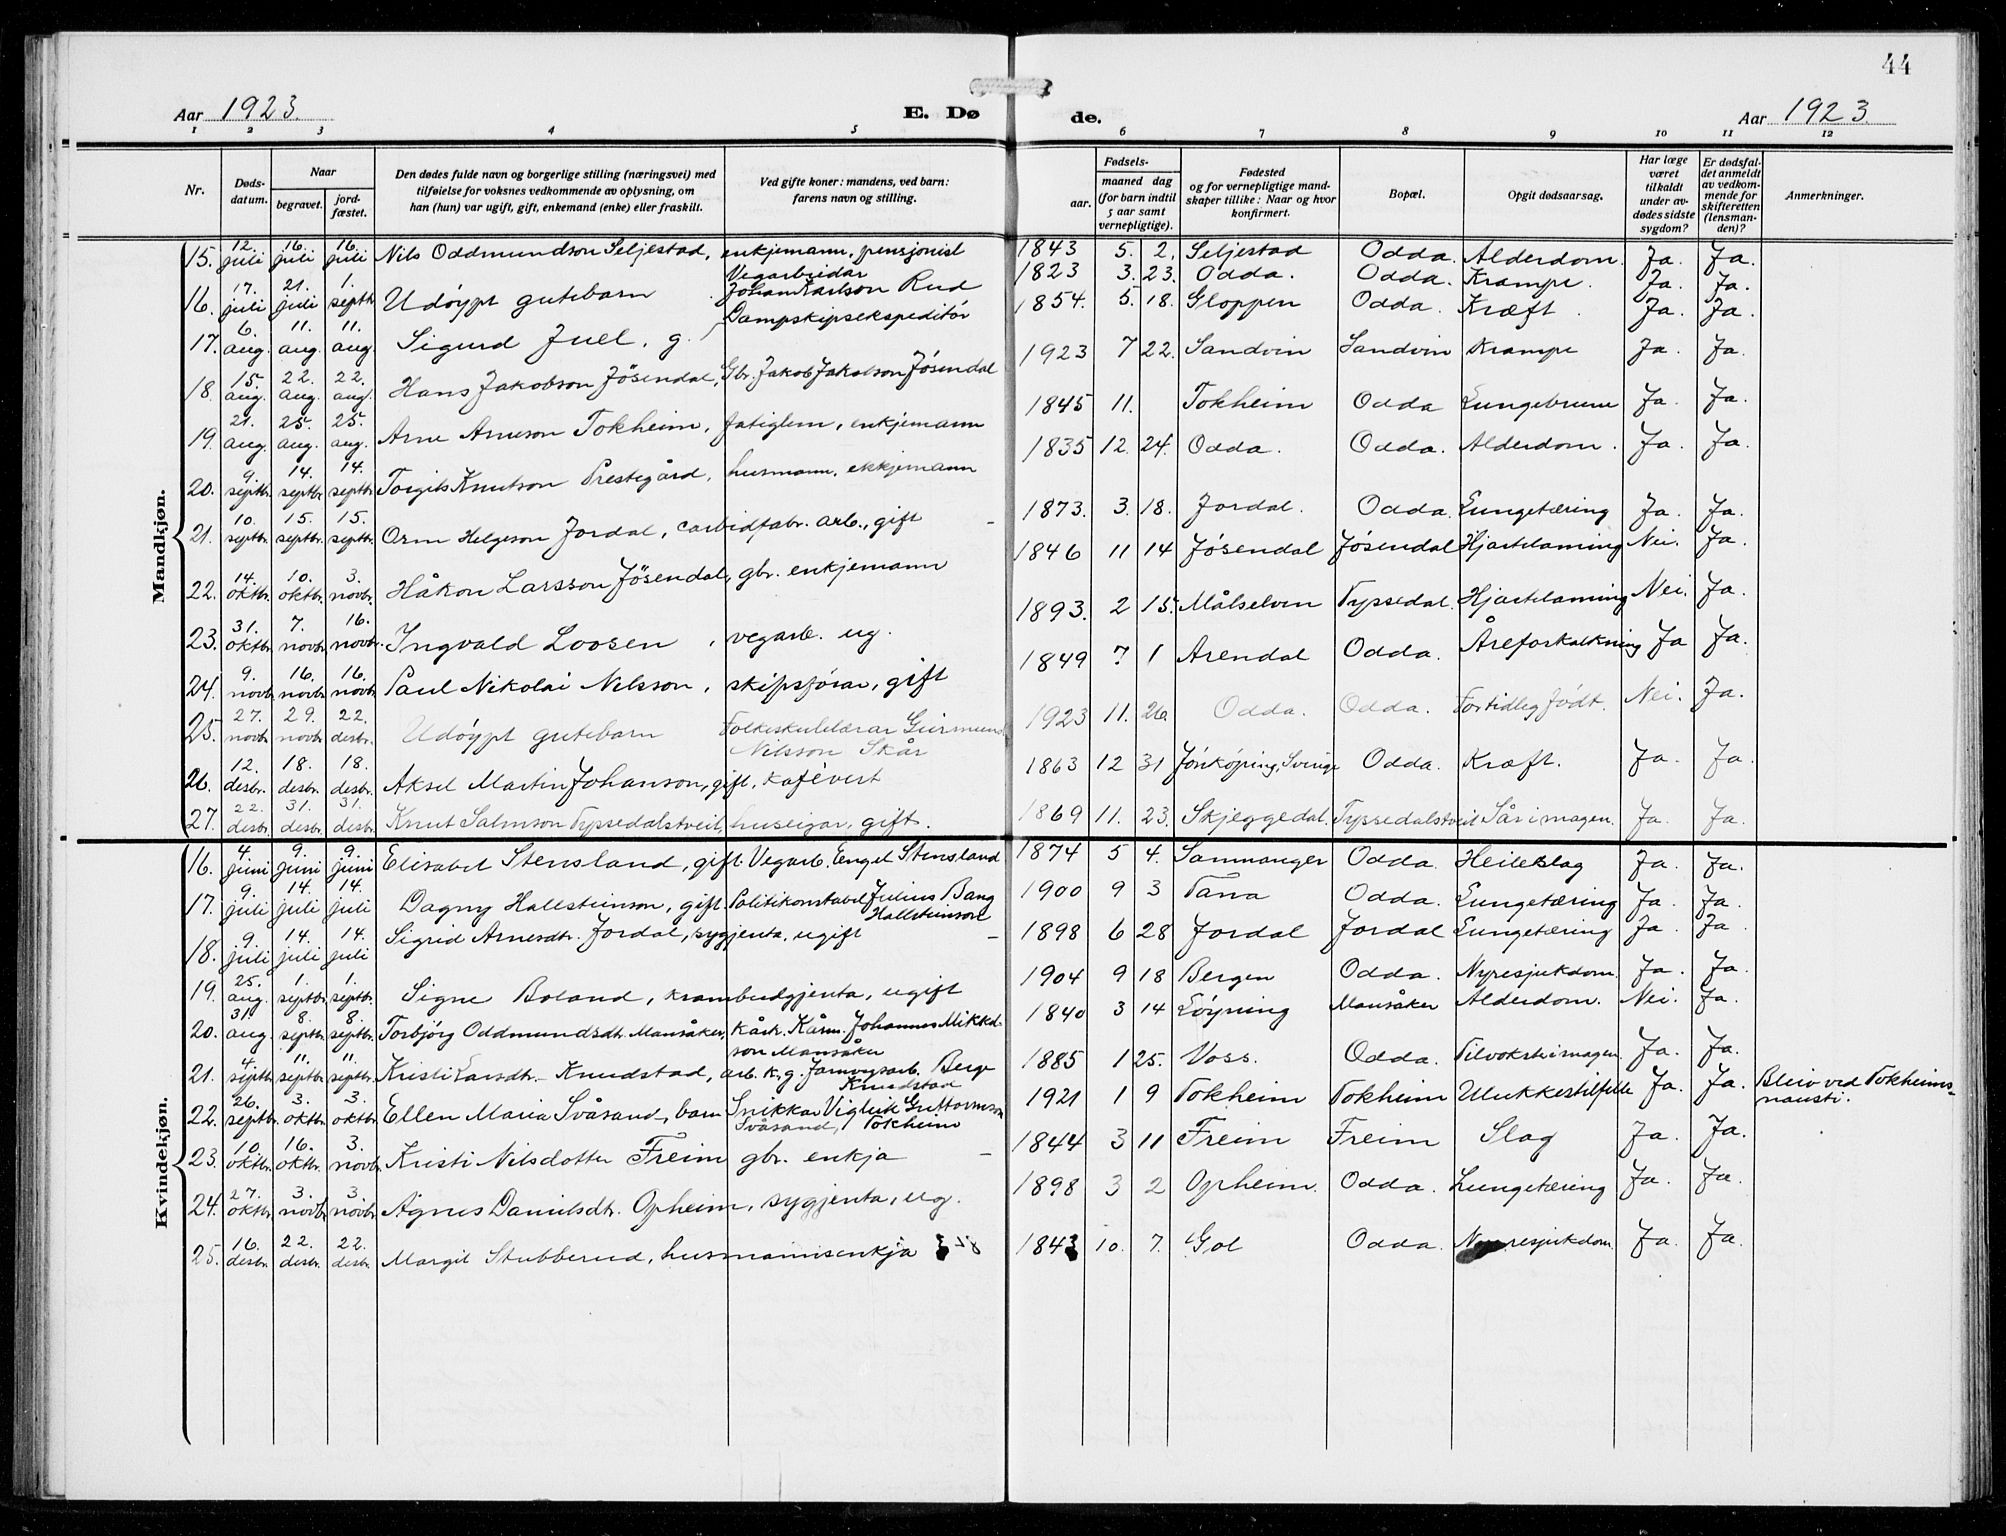 44
Aar 1923. E. Dø de. Aar 1923.
1 2 3 4 5 6 7 8 9 10 11 12
Nr. Døds-datum. Naar begravet. jord-fæstet. Den dødes fulde navn og borgerlige stilling (næringsvei) med tilføielse for voksnes vedkommende av oplysning, om han (hun) var ugift, gift, enkemand (enke) eller fraskilt. Ved gifte koner: mandens, ved barn: farens navn og stilling. Fødsels- aar. maaned dag (for barn indtil 5 aar samt vernepligtige). Fødested og for vernepligtige mand-skaper tillike: Naar og hvor konfirmert. Bopæl. Opgit dødsaarsag. Har læge været tilkaldt under av-dødes sidste sygdom? Er dødsfal-det anmeldt av vedkom-mende for skifteretten (lensman-den)? Anmerkninger.
Mandkjøn.
15. 12. juli 16. juli 16. juli Nils Oddmundson Seljestad, enkjemann, pensjonist 1843 5. 2. Seljestad Odda. Alderdom. Ja. Ja.
16. 17. juli 21. juli 1. septbr. Udöypt gutebarn. Vegarbeidar Johan Karlson Rud 1823 3. 23. Odda. Odda. Krampe. Ja. Ja.
17. 6. aug. 11. aug. 11. aug. Sigurd Juel, g. Dampskipsekspeditör 1854. 5. 18. Gloppen Odda. Kræft. Ja. Ja.
18. 15. aug. 22. aug. 22. aug. Hans Jakobson Jösendal, Gbr. Jakob Jakobson Jösendal 1923 7 22. Sandvin Sandvin Krampe Ja. Ja.
19. 21. aug. 25. aug. 25. aug. Arne Arneson Tokheim, fatiglem, enkjemann 1845 11. Tokheim Odda Lungebrune Ja. Ja.
20. 9. septbr. 14. septbr. 14. septbr. Torgils Knutson Prestegård, husmann, ekkjemann 1835 12. 24. Odda. Odda. Alderdom. Ja. Ja.
21. 10. septbr. 15. septbr. 15. septbr. Orm Helgeson Jordal, carbidfabr. arb., gift 1873. 3. 18. Jordal. Odda. Lungetæring Ja. Ja.
22. 14. oktbr. 10. oktbr. 3. novbr. Håkon Larsson Jösendal, gbr. enkjemann 1846 11 14 Jösendal Jösendal Hjartelaming Nei. Ja.
23. 31. oktbr. 7. novbr. 16. novbr. Ingvald Loosen, vegarb. ug. 1893. 2 15. Målselven Tyssedal. Hjartelaming Nei. Ja.
24. 9. novbr. 16. novbr. 16. novbr. Paul Nikolai Nelsson, skipsförar, gift 1849 7. 1 Arendal Odda. Åreforkalkning Ja Ja.
25. 27. novbr. 29. novbr. 22. desbr. Udöypt gutebarn Folkeskulelærar Geirmund Nilsson Skår 1923 11. 26. Odda. Odda. Fortidleg födt. Nei. Ja.
26. 12. desbr. 18. desbr. 18. desbr. Aksel Martin Johanson, gift, kafévert 1863 12 31 Jönköping, Sverige Odda. Kræft. Ja. Ja.
27. 22. desbr. 31. desbr. 31. desbr. Knut Salmson Tyssedalstveit, huseigar, gift. 1869 11. 23. Skjeggedal. Tyssedalstveit Sår i magen. Ja. Ja.
Kvindekjøn.
16. 4. juni 9. juni 9. juni Elisabet Stensland, gift. Vegarb. Engel Stensland 1874 5 4. Samnanger Odda. Heileslag Ja. Ja.
17. 9. juli 14. juli 14. juli Dagny Hallsteinson, gift. Politikonstabel Julius Bang Hallsteinson 1900 9 3 Tana Odda. Lungetæring Ja. Ja.
18. 9. juli 14. juli 14. juli Sigrid Arnesdtr. Jordal, sygjenta, ugift 1898 6 28 Jordal Jordal Lungetæring Ja. Ja.
19. 25. aug. 1. septbr. 1. septbr. Signe Boland, krambudgjenta, ugift 1904 9 18 Bergen Odda. Nyresjukdom. Ja. Ja.
20. 31. aug. 8. septbr. 8. septbr. Torbjörg Oddmundsdtr. Mannsåker, kårk. Kårm. Johannes Mikkelson Mannsåker 1840 3 14 Löyning Mannsåker Alderdom. Nei. Ja.
21. 4. septbr. 11. septbr. 11. septbr. Kristi Larsdtr. Knudstad, arb. k. g. Jarnvegsarb. Berge Knudstad 1885 1 25. Voss. Odda. Tilvokster i magen. Ja. Ja.
22. 26. septbr. 3. oktbr. 3. oktbr Ellen Maria Svåsand, barn Snikkar Viglik Guttormson Svåsand, Tokheim 1921 1 9 Tokheim Tokheim Ulukkestilfelle Ja. Ja. Bleiv ved Tokheims-nausti.
23. 10. oktbr. 16. oktbr. 3. novbr. Kristi Nilsdotter Freim gbr. enkja 1844 3 11 Freim Freim Slag Ja. Ja.
24. 27. oktbr. 3. novbr. 3. novbr. Agnes Danielsdtr. Opheim, sygjenta, ug. 1898 3 2 Opheim. Odda. Lungetæring Ja. Ja.
25. 16. desbr. 22. desbr. 22. desbr. Margit Stubberud, husmannsenkja 1843 10. 7. Gol Odda. Nyresjukdom Ja. Ja.